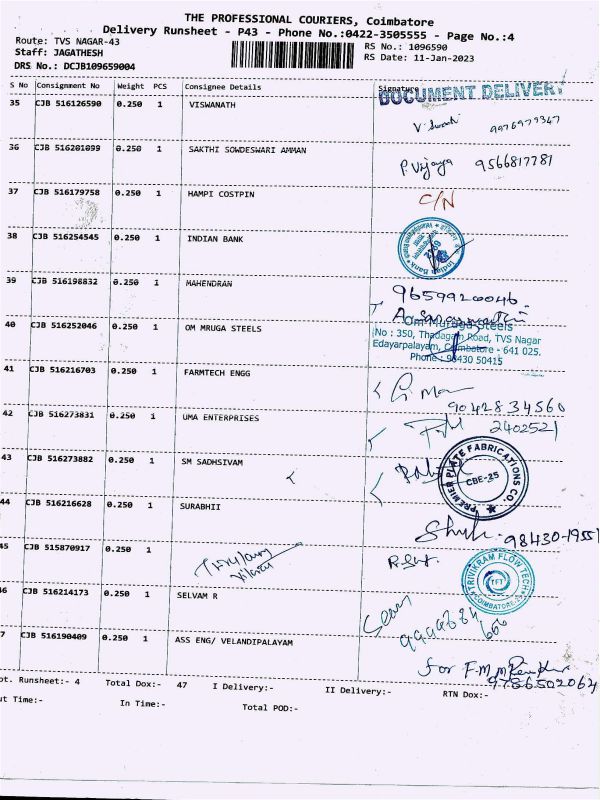 THE PROFESSIONAL COURIERS, Coimbatore
Delivery Runsheet - P43 - Phone No.:0422-3505555 - Page No.:4
Route: TVS NAGAR-43
RS No.: 1096590
Staff: JAGATHESH
RS Date: 11-Jan-2023
DRS No.: DCJB109659004
S No Consignment No Weight PCS Consignee Details Signature
DOCUMENT DELIVERY
35 CJB 516126590 0.250 1 VISWANATH
9976979347
36 CJB 516201099 0.250 1 SAKTHI SOWDESWARI AMMAN
P. Vijaya 9566817781
37 CJB 516179758 0.250 1 HAMPI COSTPIN
C/N
38 CJB 516254545 0.250 1 INDIAN BANK
Indian Bank
39 CJB 516198832 0.250 1 MAHENDRAN
9659920046
40 CJB 516252046 0.250 1 OM MRUGA STEELS
Om Muruga Steels
No : 350, Thadagam Road, TVS Nagar
Edayarpalayam, Coimbatore - 641 025.
Phone : 98430 50415
41 CJB 516216703 0.250 1 FARMTECH ENGG
9042834560
42 CJB 516273831 0.250 1 UMA ENTERPRISES
2402521
43 CJB 516273882 0.250 1 SM SADHSIVAM
PREMIER PLATE FABRICATIONS CO.
CBE-25
44 CJB 516216628 0.250 1 SURABHII
98430-19551
45 CJB 515870917 0.250 1
TRIVIKRAM FLOW TECH
TFT
COIMBATORE
46 CJB 516214173 0.250 1 SELVAM R
47 CJB 516190409 0.250 1 ASS ENG/ VELANDIPALAYAM
for F.M.M
9786502064
pt. Runsheet:- 4 Total Dox:- 47 I Delivery:- II Delivery:- RTN Dox:-
ut Time:- In Time:- Total POD:-